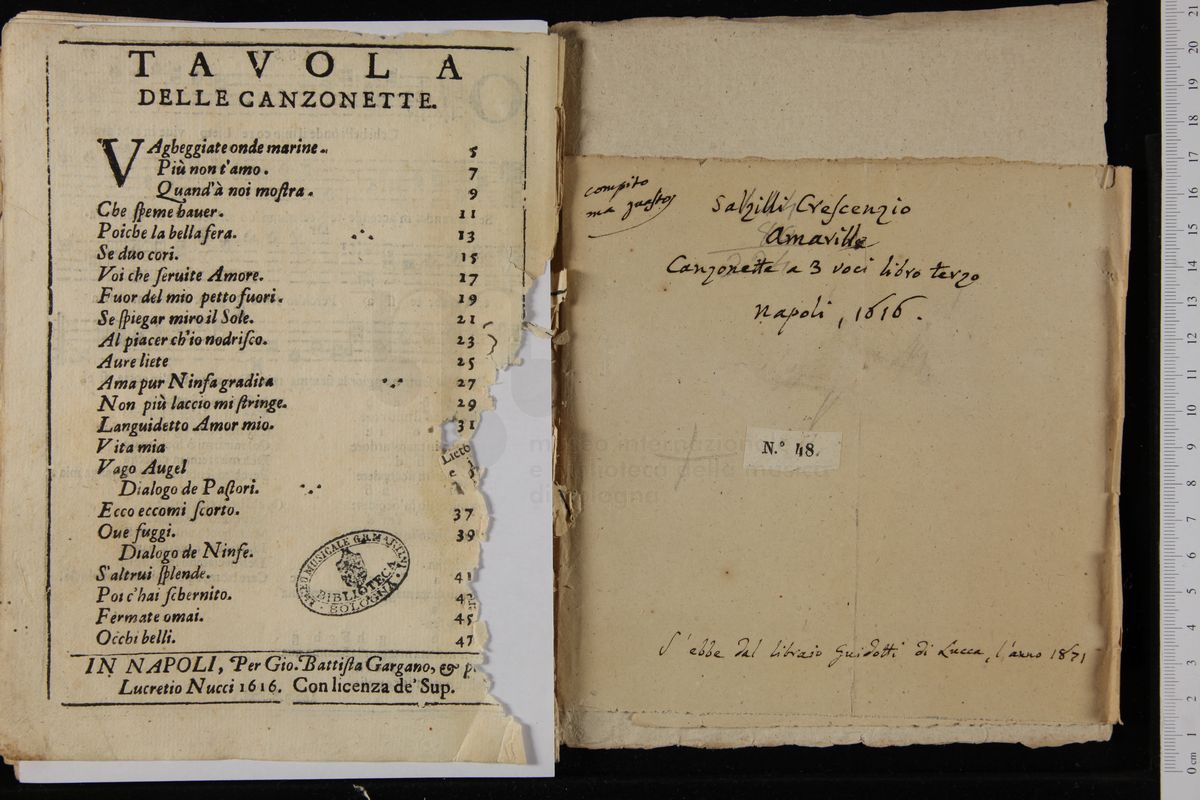 TAVOLA
DELLE CANZONETTE.
VAgheggiate onde marine. 5
Più non t'amo. 7
Quand'à noi moſtra. 9
Che ſpeme hauer. 11
Poiche la bella fera. 13
Se duo cori. 15
Voi che ſeruite Amore. 17
Fuor del mio petto fuori. 19
Se ſpiegar miro il Sole. 21
Al piacer ch'io nodriſco. 23
Aure liete 25
Ama pur Ninfa gradita 27
Non più laccio mi ſtringe. 29
Languidetto Amor mio. 31
Vita mia
Vago Augel
Dialogo de Paſtori.
Ecco eccomi ſcorto. 37
Oue fuggi. 39
Dialogo de Ninfe.
S'altrui ſplende. 41
Poi c'hai ſchernito.
Fermate omai. 45
Occhi belli. 47
IN NAPOLI, Per Gio. Battiſta Gargano, & p
Lucretio Nucci 1616. Con licenza de' Sup.
Lieto
e
LICEO MUSICALE G.B. MARTINI
BIBLIOTECA
BOLOGNA
compito
ma guasto
Salzilli Crescenzio
Amarille
Canzonette a 3 voci libro terzo
Napoli, 1616.
N.° 48.
museo internazionale
e biblioteca della musica
di bologna
S'ebbe dal libraio Guidotti di Lucca, l'anno 1871
0 cm 1 2 3 4 5 6 7 8 9 10 11 12 13 14 15 16 17 18 19 20 21